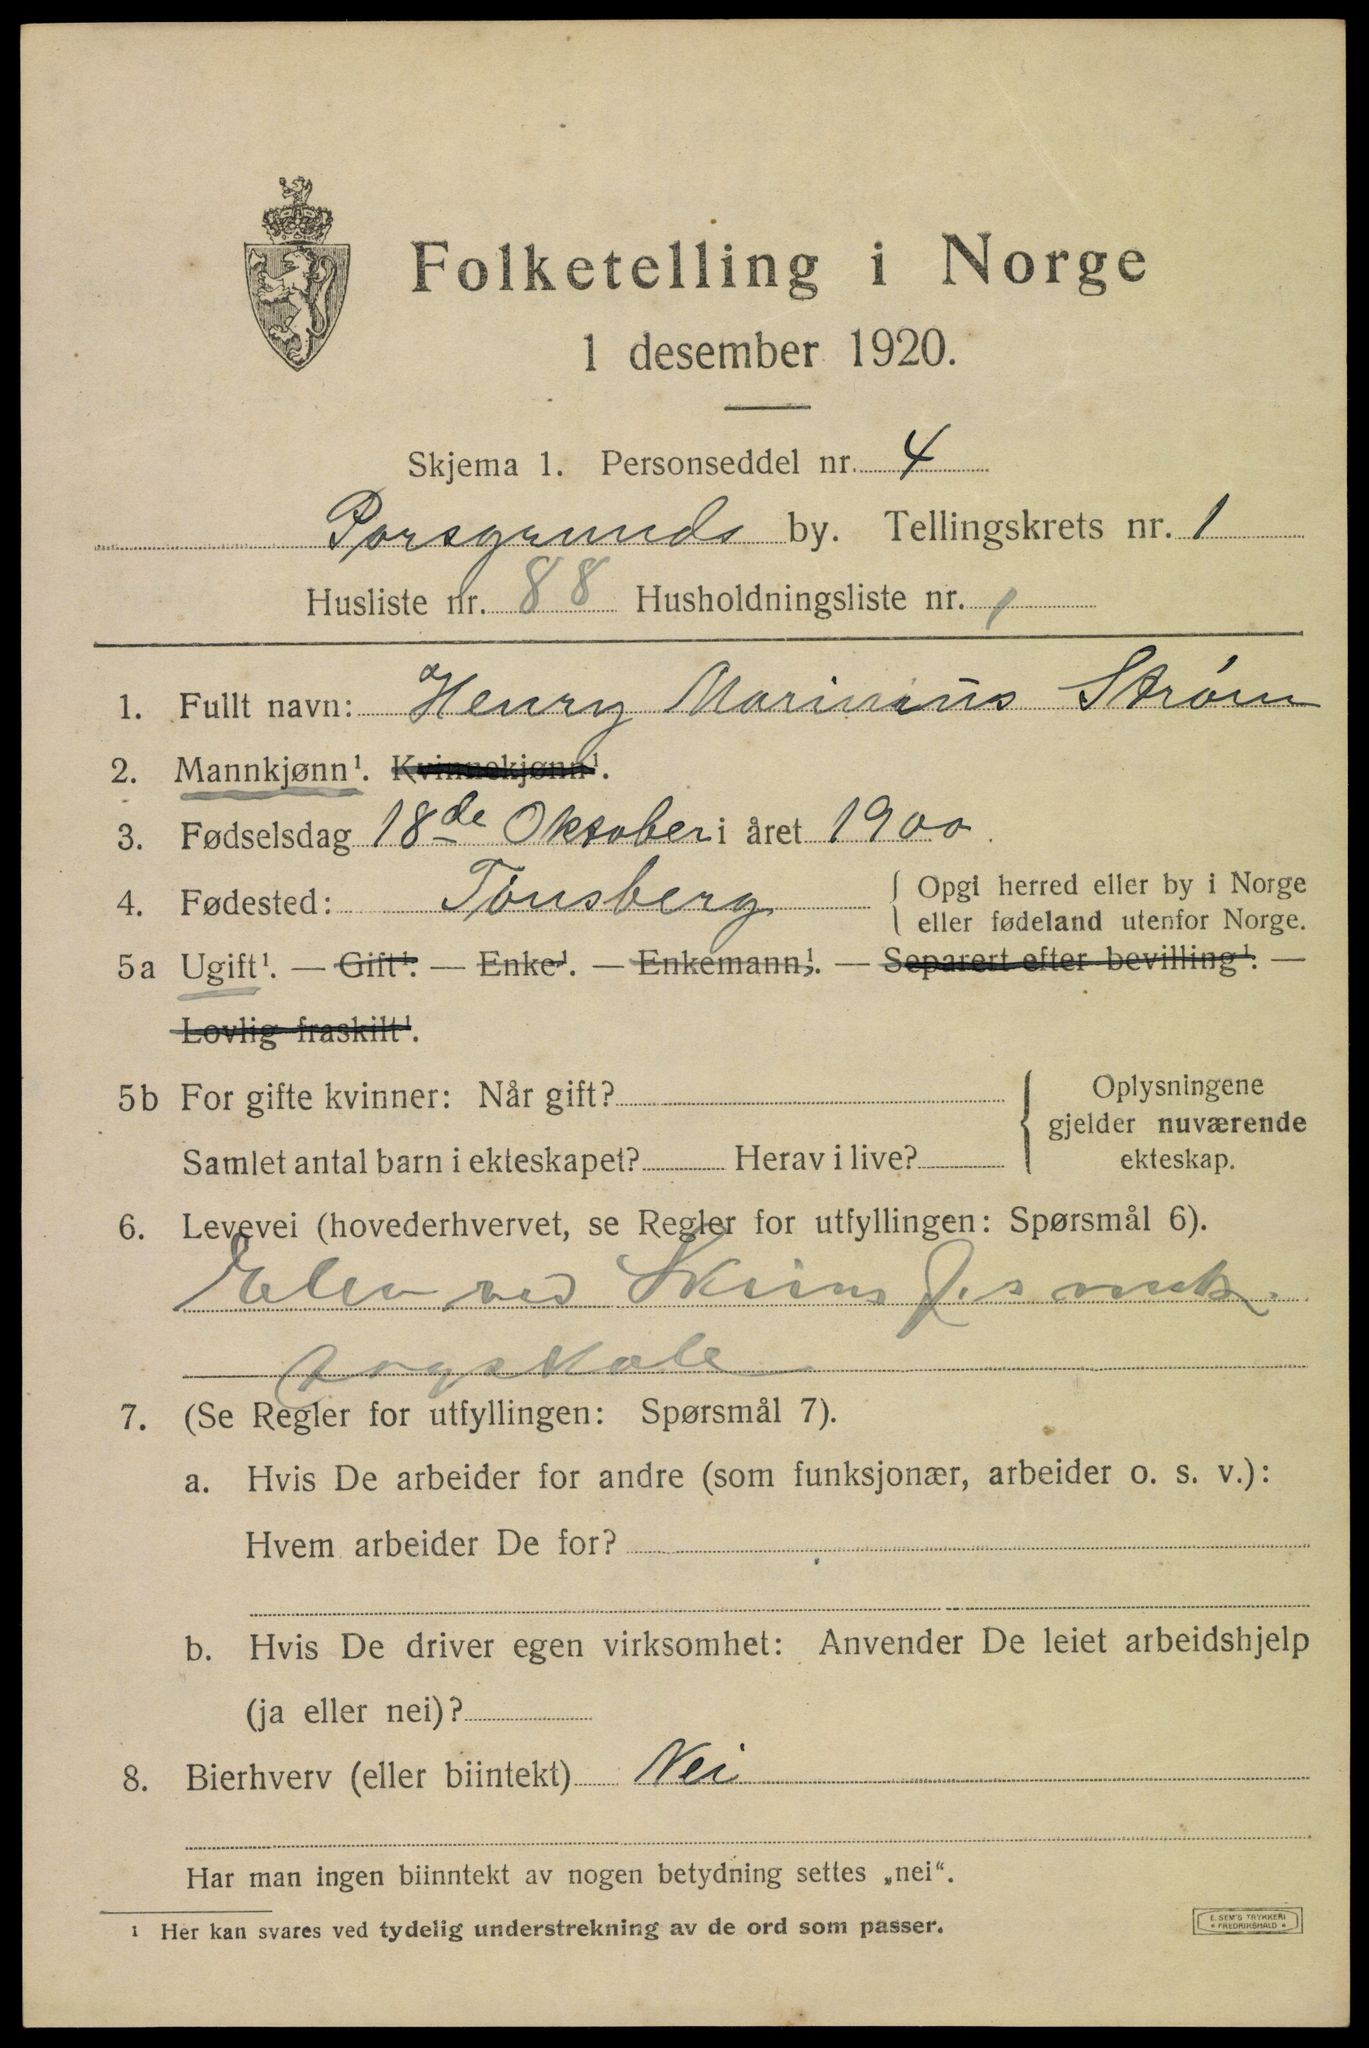 Folketelling i Norge
1 desember 1920.
Skjema 1. Personseddel nr. 4
Porsgrunds by. Tellingskrets nr. 1
Husliste nr. 88 Husholdningsliste nr. 1
1. Fullt navn: Henry Marinius Strøm
2. Mannkjønn¹. Kvinnekjønn¹.
3. Fødselsdag 18de Oktober i året 1900
4. Fødested: Tønsberg { Opgi herred eller by i Norge
eller fødeland utenfor Norge.
5a Ugift¹. — Gift¹. — Enke¹. — Enkemann¹. — Separert efter bevilling¹. —
Lovlig fraskilt¹.
5b For gifte kvinner: Når gift? { Oplysningene
gjelder nuværende
Samlet antal barn i ekteskapet? Herav i live? ekteskap.
6. Levevei (hovederhvervet, se Regler for utfyllingen: Spørsmål 6).
Elev ved Skiens
7. (Se Regler for utfyllingen: Spørsmål 7).
a. Hvis De arbeider for andre (som funksjonær, arbeider o. s. v.):
Hvem arbeider De for?
b. Hvis De driver egen virksomhet: Anvender De leiet arbeidshjelp
(ja eller nei)?
8. Bierhverv (eller biintekt) Nei
Har man ingen biinntekt av nogen betydning settes „nei“.
¹ Her kan svares ved tydelig understrekning av de ord som passer.
E. SEM'S TRYKKERI
• FREDRIKSHALD •